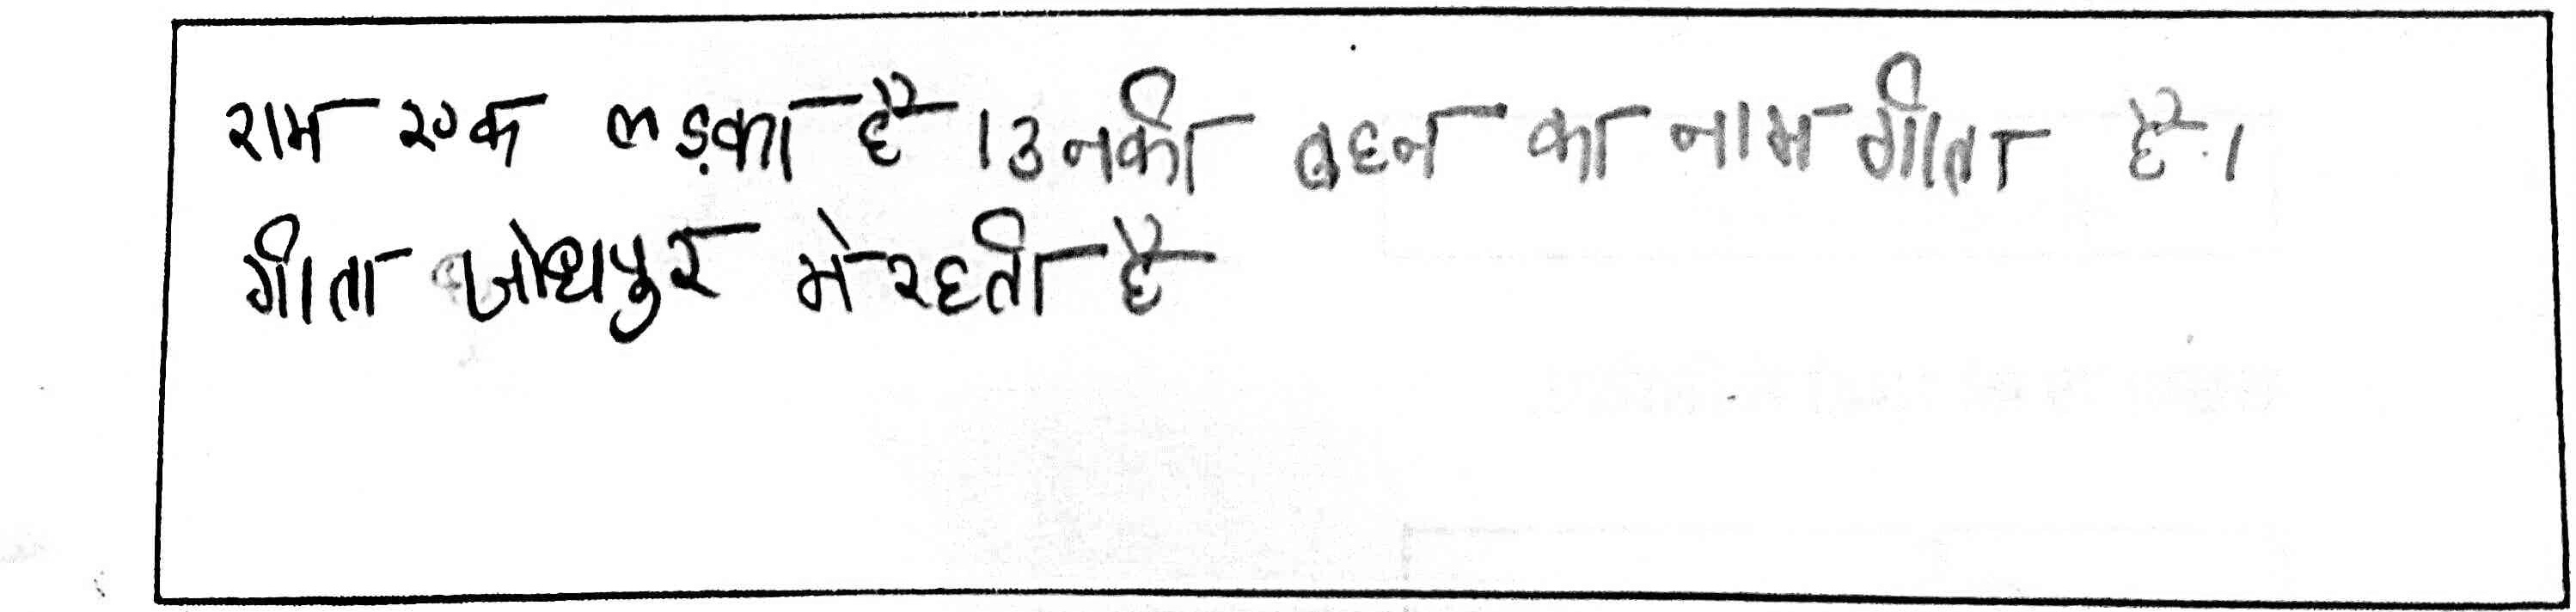 राम एक लड़का है । उनकी बहन का नाम गीता है ।
गीता जोधपुर मे रहती है